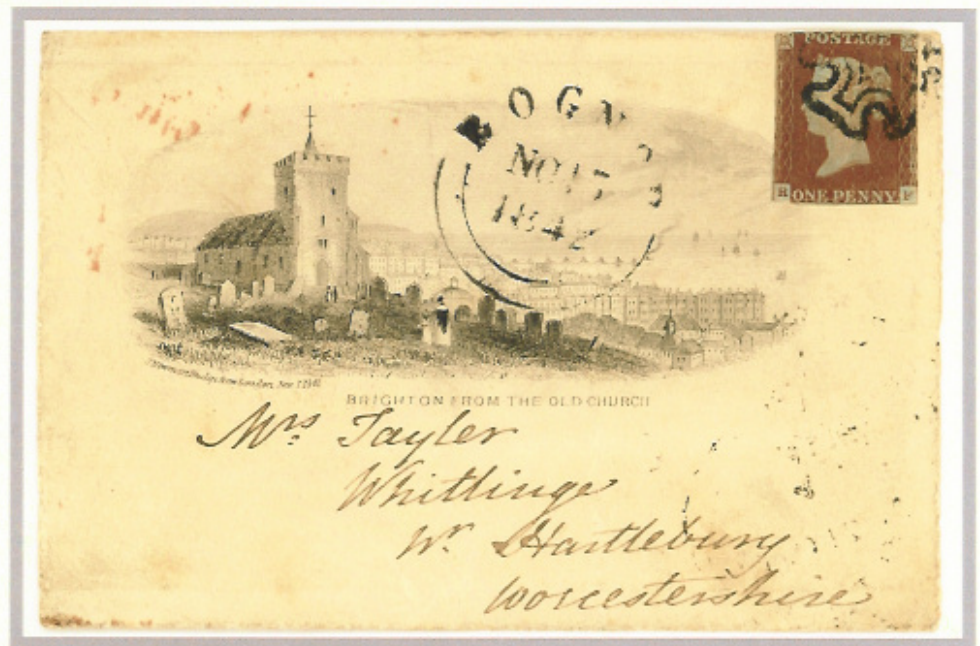 POSTAGE
ONE PENNY
OGN
NO 15
1842
BRIGHTON FROM THE OLD CHURCH
Mrs Tayler
Whitlinge
Nr Hartlebury
Worcestershire